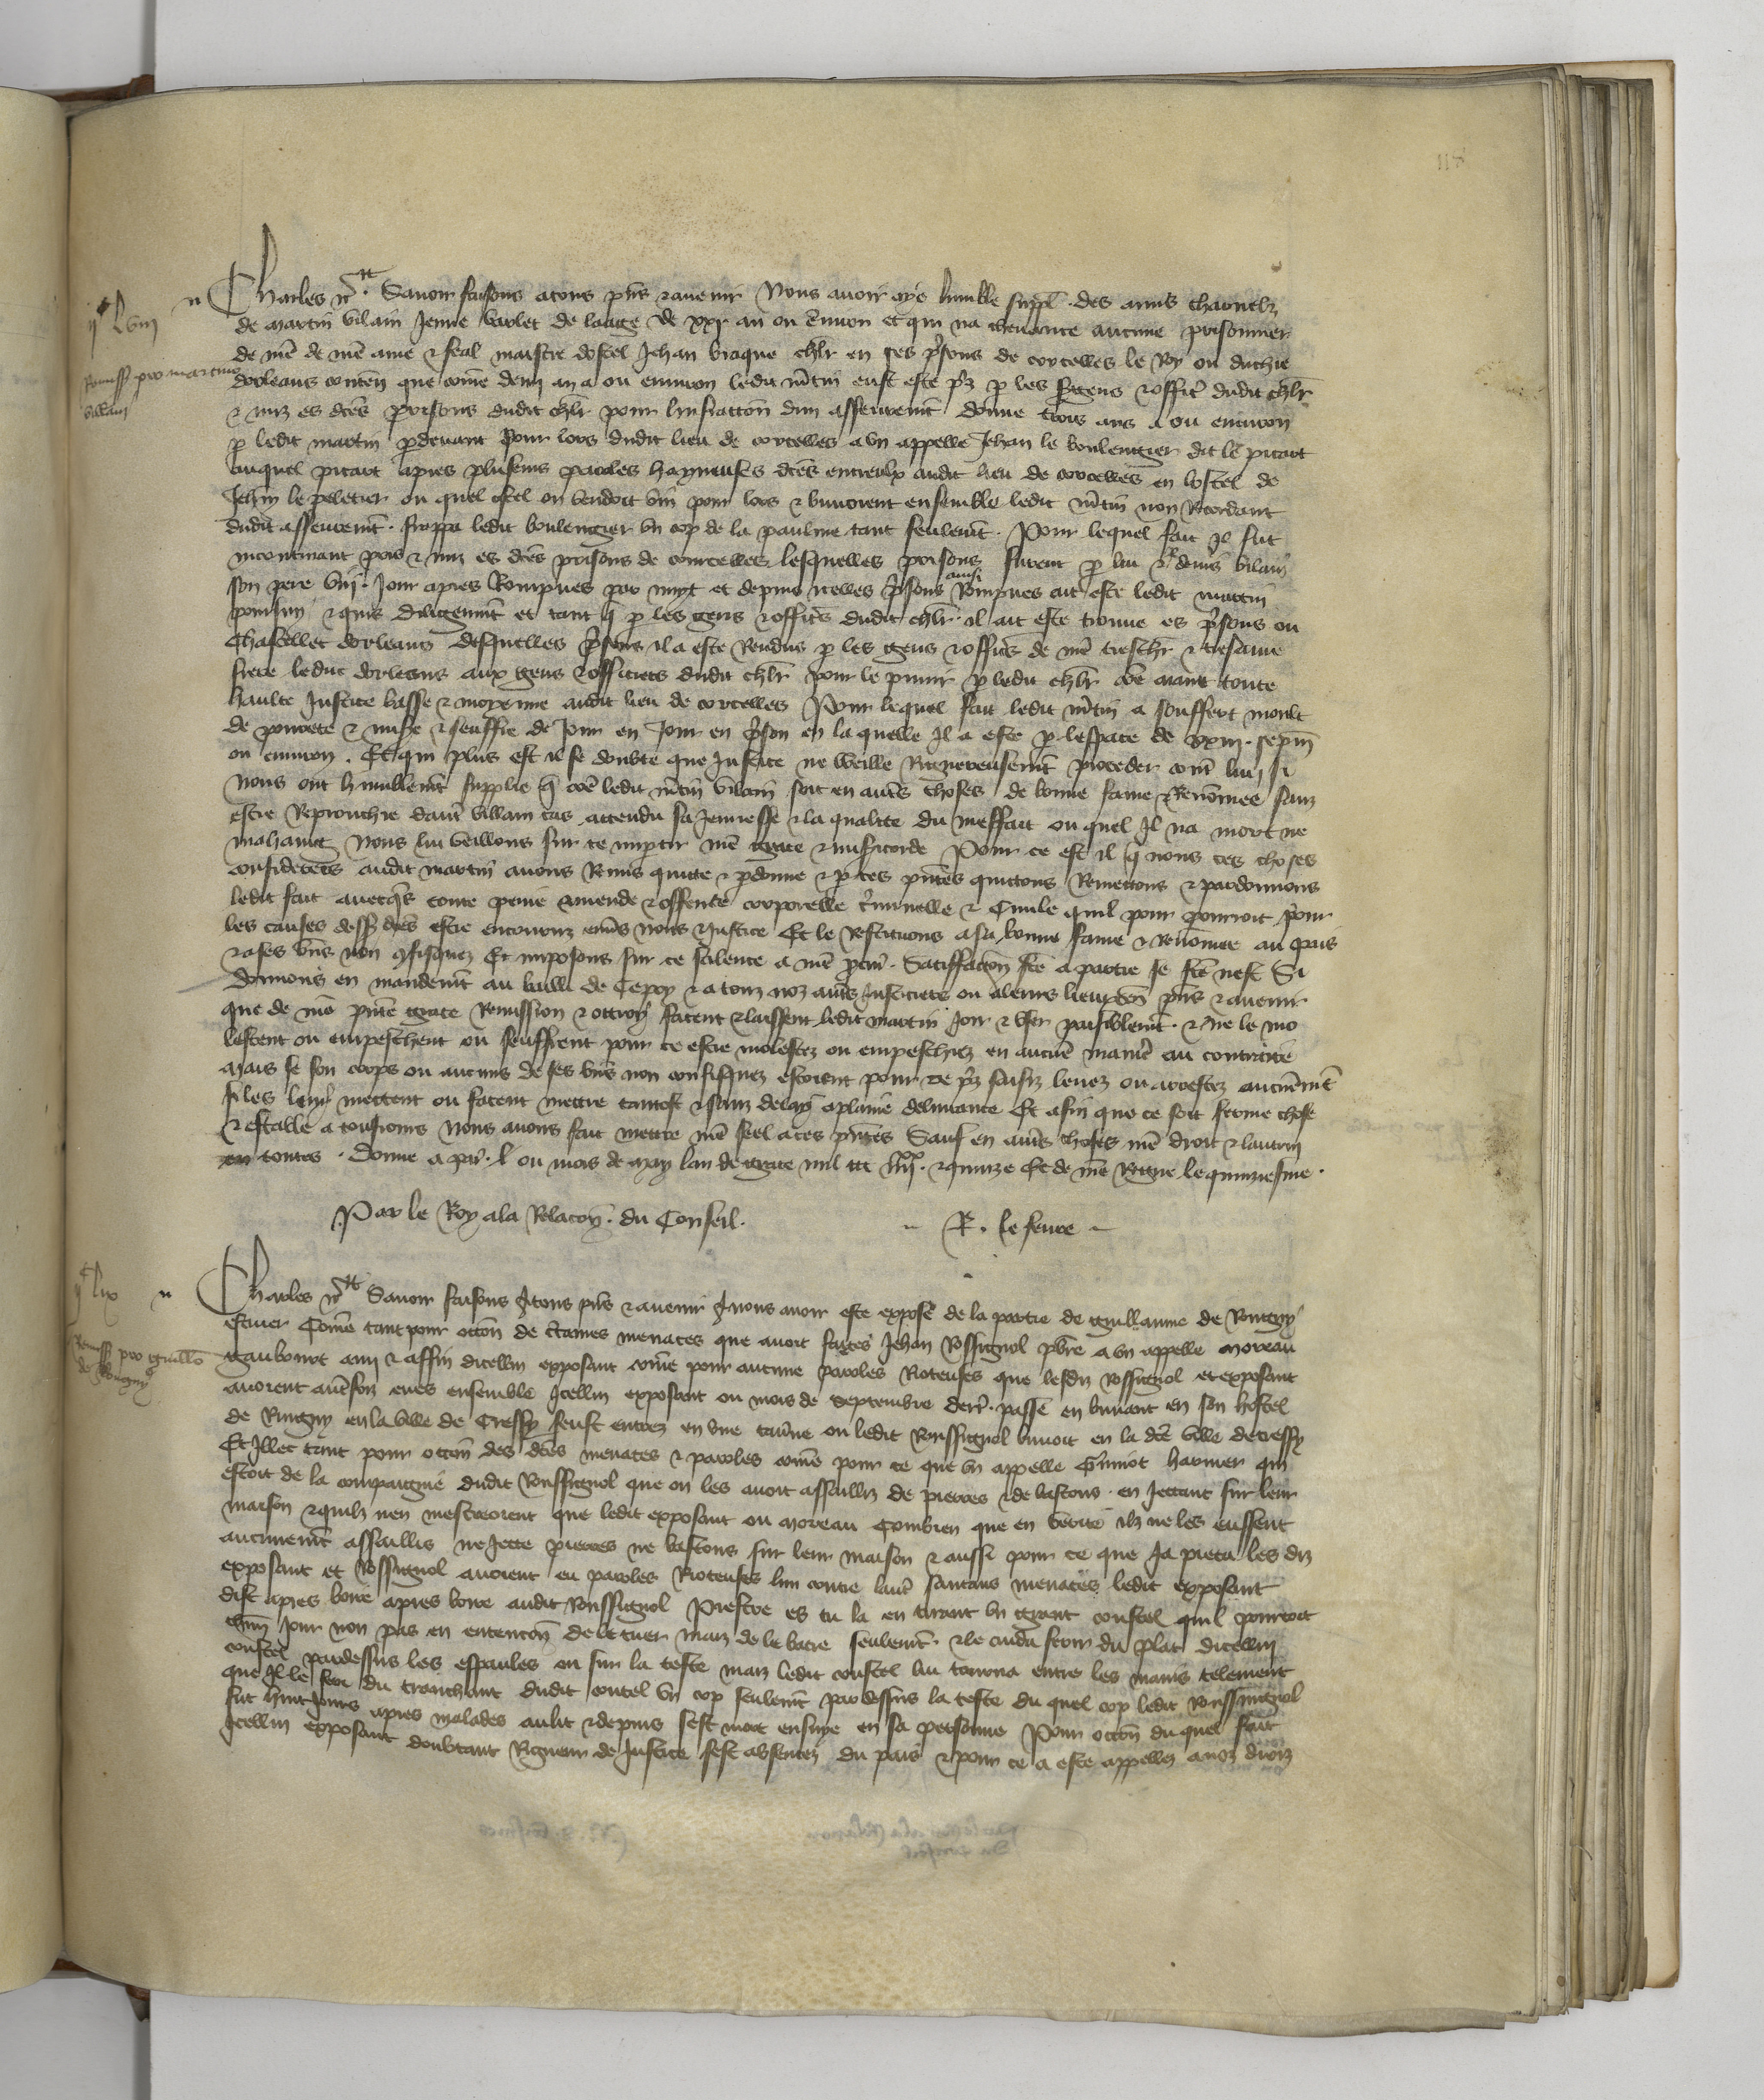 118
Charles etc. Savoir faisons a tous pñs & avenir Nous avoir oye lumble suppl. des amis charnelz
ijᶜ lviij
de Martin Vilain jenne varlet de laage de xxj an ou environ et qui na chevance aucune prisonnier
de nr̃e de nr̃e ame & feal maistre dostel Jehan braque chlr̃ en ses p̃sons de corcelles le Roy ou duchie
Remiss pro martino
vilain
dorleans conteñ que cõme deux an a ou environ ledit m̃tin eust este p̃z p les sergens & offic̃ dudit chlr̃
& mis es dc̃es prisons dudit chlr̃ pour linfractoñ dun asseurem̃t donne trois ans a ou environ
p ledit martin pdevant pour lors dudit lieu de corcelles a un appelle Jehan le boulengier dit le picart
auquel picart apres pluseurs paroles haynneuses dc̃es entreulx audit lieu de corcelles en lostel de
Jehñ le peletier ou quel ostel on vendoit vin pour lors & buvoient ensemble ledit m̃tin non Recordant
dudit asseurem̃t. frappa ledit boulengier un cop de la paulme tant seulem̃t. Pour lequel fait il fut
incontinant pris & mis es dc̃es prisons de courcelles lesquelles prisons furent p lui & denis vilain
son pere viij. jour apres Rompues par nuyt et depuis icelles p̃sons ainsi Rompues ait este ledit martin
poursui & quis diligem̃t et tant q̃ p les gens & offic̃s dudit chlr̃. il ait este trouve es p̃sons ou
Chastellet dorleans desquelles p̃sons il a este Rendus p les gens & offic̃s de nr̃e treschr̃ & tresame
frere le duc dorleans aux gens & officiers dudit chlr̃ pour le punir p ledit chlr̃ cõe aiant toute
haulte justice basse & moyenne audit lieu de corcelles Pour lequel fait ledit m̃tin a souffert moult
de povrete & mis̃e & seuffre de jour en jour en p̃son en la quelle il a este p lespace de xxiij. sepm̃
ou environ. Et qui plus est il se doubte que justice ne vueille Rigoreusem̃t proceder cont̃ lui si
nous ont humblem̃t supplie q̃ cõe ledit m̃tin vilain soit en aut̃s choses de bonne fame & Renommee sanz
estre Reprouchie daut̃ villain cas attendu sa jennesse & la qualite du meffait ou quel il na mort ne
mahaing Nous lui veillons sur ce imptir nr̃e grace & mis̃icorde Pour ce est il q̃ nous ces choses
considerees audit martin avons Remis quitte & pdonne & p ces pñtes quittons Remettons & pardonnons
ledit fait avecq̃s toute peine amende & offense corporelle c̃minelle & civile quil pour pourroit pour
les causes dess̃ dc̃es estre encouruz env̂s nous & justice Et le Restituons a sa bonne fame & Renommee au pais
& a ses biñs non ꝯfisquez Et imposons sur ce silence a nr̃e pcur̃. Satisfactoñ fc̃e a partie se fc̃e nest Si
donnons en mandem̃t au bailli de Cepoy & a touz noz aut̃s justiciers ou a leurs lieuteñ pñs & avenir
que de nr̃e pñte grace Remission & ottroy facent & laissent ledit martin joir & user paisiblem̃t. & ne le mo
lestent ou empeschent ou seuffrent pour ce estre molestez ou empeschiez en aucũe manier̃ au contraire
Mais se son corps ou aucuns de ses biñs non confisquez estoient pour ce p̃z saisiz levez ou arrestez aucunem̃t
si les lui mettent ou facent mettre tantost & sanz delay a plaine delivrance Et afin que ce soit ferme chose
& estable a tousjours Nous avons fait mettre nr̃e seel a ces pñtes Sauf en aut̃s choses nr̃e droit & lautruy
en toutes. Donne a par̃. l ou mois de may lan de grace mil ccc iiijˣˣ. & quinze Et de nr̃e Regne le quinziesme.
Par le Roy a la Relacoñ. du Conseil.
R. le fevre
ijᶜ lix
Charles etc. Savoir faisons a tous pñs & avenir a nous avoir este expose de la partie de guillaume de Rongny
Remiss pro guillõ
de Rongny
escuier Cõme tant pour occoñ de c̃taines menaces que avoit faites Jehan Rossignol pb̃re a un appelle moreau
gaubourt ami & affin dicellui exposant cõme pour aucune paroles Roteuses que lesdiz Rossignol et exposant
avoient aut̃sfoiz eues ensemble Icellui exposant ou mois de septembre derr̃. passe en buvant en son hostel
de Rungny en la ville de Cressy feust entrez en une tav̂ne ou ledit Roussignol buvoit en la dc̃e ville de cressy
Et illec tant pour occoñ des dc̃es menaces & paroles cõme pour ce que un appelle G̃uiot harmer qui
estoit de la compaignie dudit Roussignol que on les avoit assailliz de pierres & de bastons. en jettant sur leur
maison & quilz nen mescreoient que ledit exposant ou moreau Combien que en verite ilz ne les eussent
aucunem̃t assaillis ne jette pierres ne bastons sur leur maison & aussi pour ce que ja pieca les diz
exposant et Rossignol avoient eu paroles Rioteuses lun contre laut̃ santans menaces ledit exposant
dist apres boire apres boire audit Roussignol Prestre es tu la en tirant un grant coustel quil portoit
chũn jour non pas en entencoñ de le tuer maiz de le batre seulem̃t. & le cuida ferir du plat dicellui
coustel pardessus les espaules ou sur la teste maiz ledit coustel lui tourna entre les mains telement
que il le feri du tranchant dudit coutel un cop seulem̃t par dessus la teste du quel cop ledit Roussignol
fut huit jours apres malades au lit & depuis sest mort ensuye en sa personne Pour occoñ du quel fait
Icellui exposant doubtant Rigueur de justice sest absentez du pais & pour ce a este appellez a noz droiz